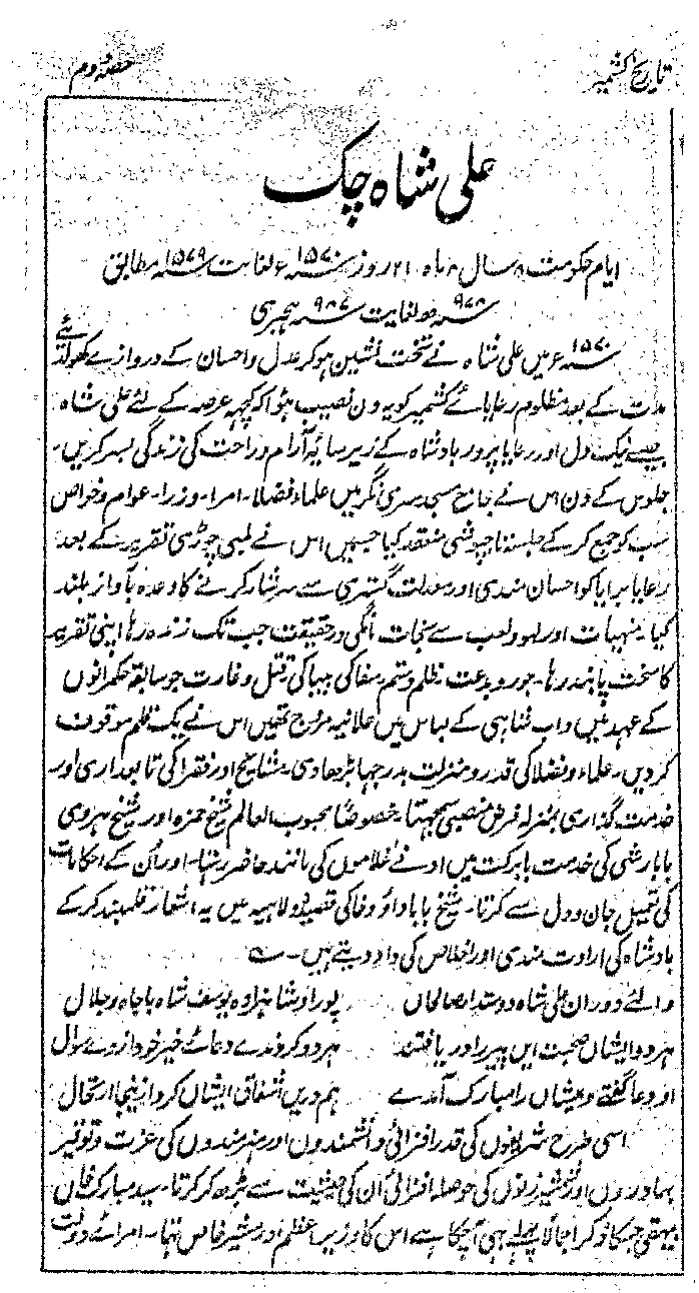 تاریخ کشمیر
حصہ دوم
علی شاہ چک
ایام حکومت ۸ سال ۸ ماہ ۲۱ روز ۱۵۷۰ء لغایت ۱۵۷۹ء مطابق
۹۷۸ھ لغایت ۹۸۷ ہجری
۱۵۷۰ء میں علی شاہ نے تخت نشین ہو کر عدل و احسان کے دروازے کھولدئے
مدت کے بعد مظلوم رعایائے کشمیر کو یہ دن نصیب ہوا کہ کچہہ عرصہ کے لئے علی شاہ
جیسے نیک دل اور رعایا پرور بادشاہ کے زیر سایہ آرام و راحت کی زندگی بسر کریں۔
جلوس کے دن اس نے جامع مسجد سری نگر میں علماء فضلا۔ امرا۔ وزرا۔ عوام و خواص
سب کو جمع کر کے جلسہ تاجپوشی منعقد کیا جسمیں اس نے لمبی چوڑی تقریر کے بعد
رعایا برایا کو احسان مندی اور معدلت گستری سے سرشار کرنے کا وعدہ بآواز بلند
کیا۔ منہیات اور لہو و لعب سے نجات مانگی درحقیقت جب تک زندہ رہا اپنی تقریر
کا سخت پابند رہا۔ جور و بدعت ظلم و ستم سفاکی بیباکی قتل و غارت جو سابقہ حکمرانوں
کے عہد میں داب شاہی کے لباس میں علانیہ مروج تھیں اس نے یک قلم موقوف
کر دیں۔ علماء و فضلا کی قدر و منزلت بدرجہا بڑھا دی۔ مشایخ اور فقرا کی تابعداری اور
خدمت گذاری بمنزلہ فرض منصبی سمجہتا۔ خصوصاً محبوب العالم شیخ حمزہ اور شیخ ہروی
بابا رشی کی خدمت بابرکت میں ادنے غلاموں کی مانند حاضر رہتا۔ اور اُن کے احکامات
کی تعمیل جان و دل سے کرتا۔ شیخ بابا داؤد وفا کی قصیدہ لامیہ میں یہ اشعار قلمبند کر کے
بادشاہ کی ارادت مندی اور اخلاص کی داد دیتے ہیں۔ ؎
والئے دوران علی شاہ دوستدار صالحاں پور او شاہزادہ یوسف شاہ باجاہ و جلال
ہر دو ایشاں صحبت ایں پیر را دریافتند ہر دو کردندے دعائے خیر خود از وے سوال
او دعا گفتے و بیشاں را مبارک آمدے ہم دریں اشفاق ایشاں کرد از ینجا ارتحال
اسی طرح شریفوں کی قدر افزائی دانشمندوں اور ہنرمندوں کی عزت و توقیر
بہادروں اور شمشیر زنوں کی حوصلہ افزائی اُن کی حیثیت سے بڑھ کر کرتا۔ سید مبارک خاں
بیہقی جسکا ذکر اجمالاً پہلے ہی آچکا ہے اس کا وزیر اعظم اور مشیر خاص تہا۔ امرائے دولت